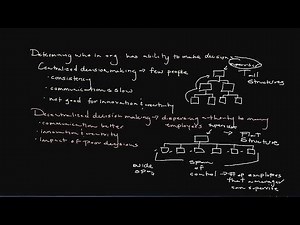 Determining who in org has ability to make decisions
Centralized decision making → few people
• consistency
• communication is slow
• not good for innovation & creativity
Tall
Structures
Decentralized decision making → dispersing authority to many
employees
• communications better
• innovation & creativity
• impact of poor decisions
Flat
Structure
wide
span
span
of
control → # of employees
that a manager
can supervise